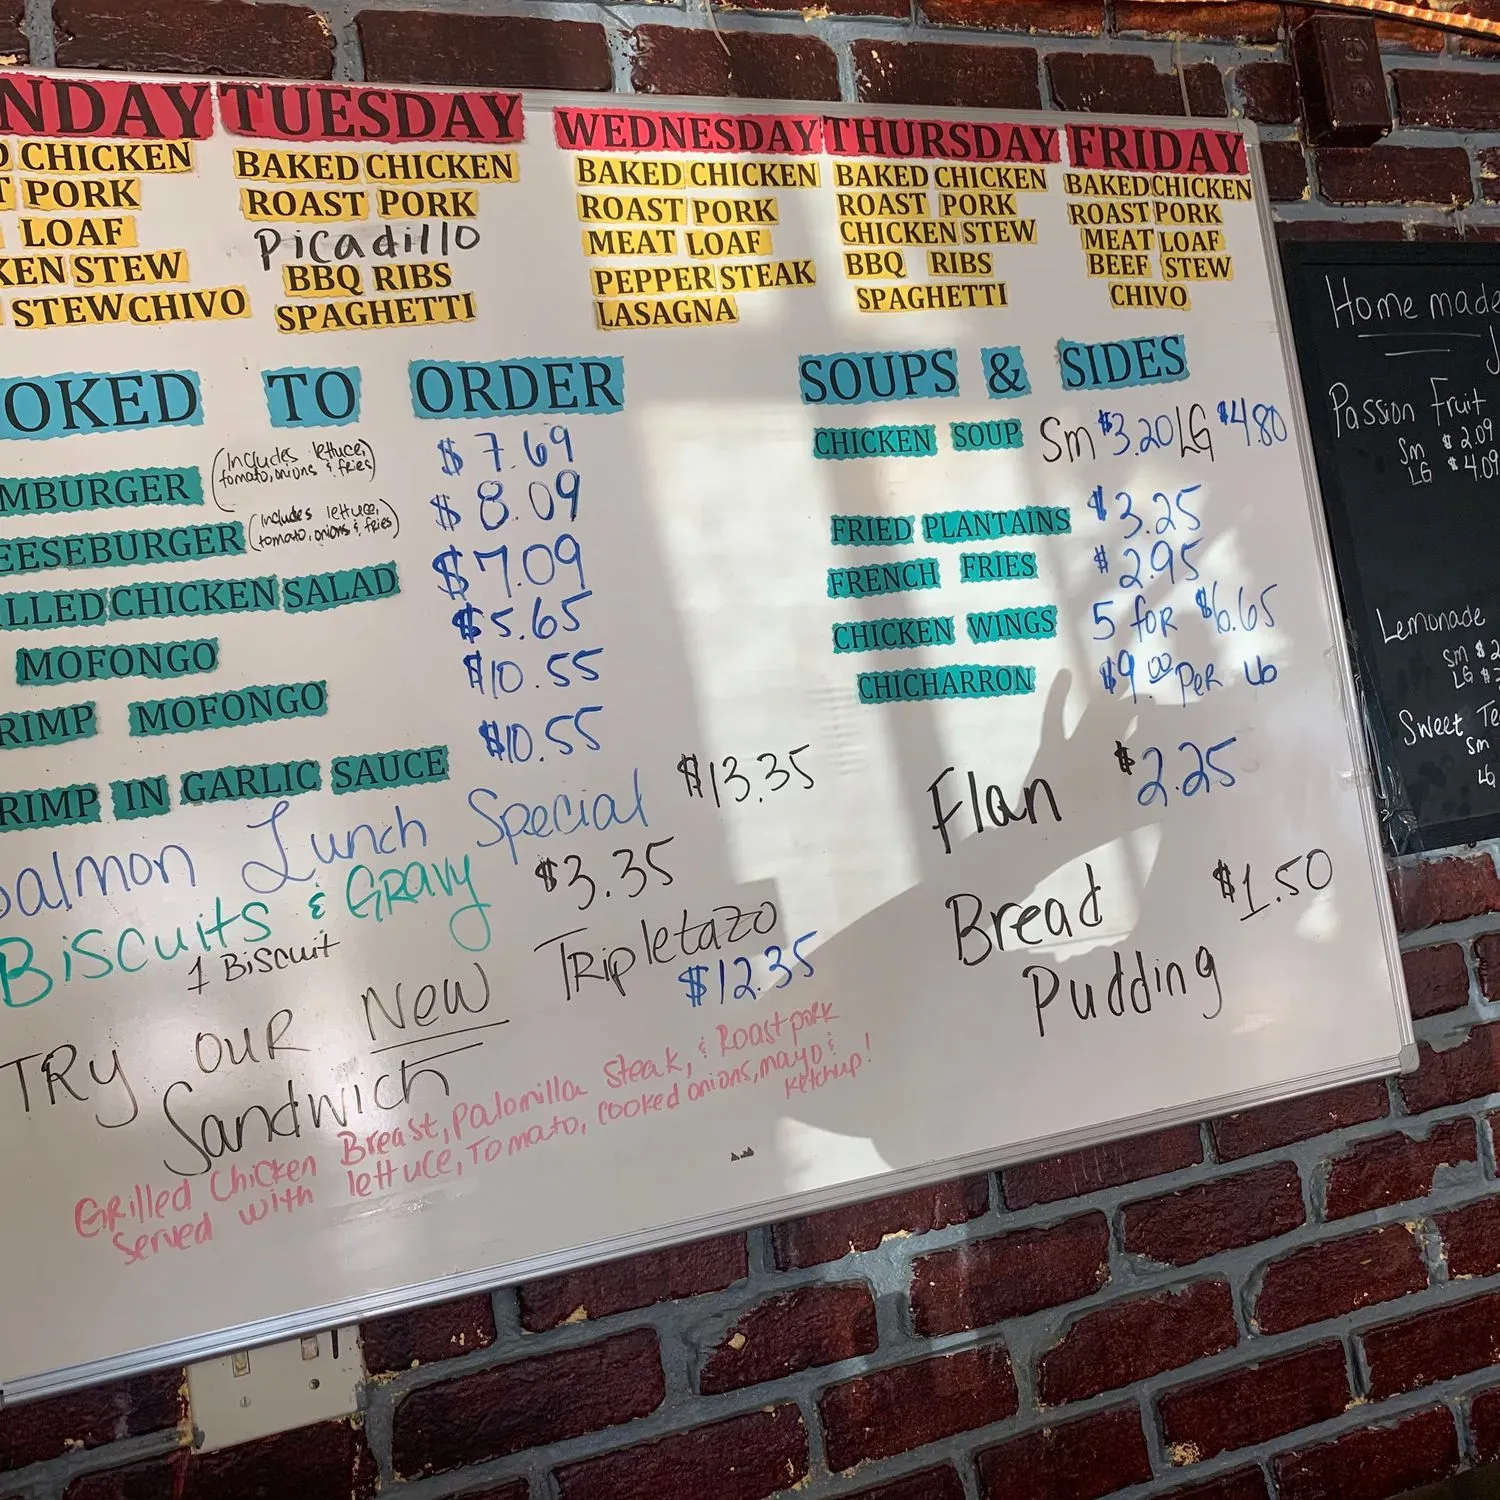 NDAY TUESDAY WEDNESDAY THURSDAY FRIDAY
CHICKEN
PORK
LOAF
KEN STEW
STEW CHIVO
BAKED CHICKEN
ROAST PORK
Picadillo
BBQ RIBS
SPAGHETTI
BAKED CHICKEN
ROAST PORK
MEAT LOAF
PEPPER STEAK
LASAGNA
BAKED CHICKEN
ROAST PORK
CHICKEN STEW
BBQ RIBS
SPAGHETTI
BAKED CHICKEN
ROAST PORK
MEAT LOAF
BEEF STEW
CHIVO
OKED TO ORDER
MBURGER (includes lettuce, tomato, onions & fries) $7.69
EESEBURGER (includes lettuce, tomato, onions & fries) $8.09
LLED CHICKEN SALAD $7.09
MOFONGO $5.65
RIMP MOFONGO $10.55
RIMP IN GARLIC SAUCE $10.55
Salmon Lunch Special $13.35
Biscuits & GRAVY $3.35
1 Biscuit
TRY OUR NEW
Sandwich
Tripletazo
$12.35
Grilled Chicken Breast, Palomilla Steak, & Roast pork
Served with lettuce, Tomato, cooked onions, mayo &
ketchup!
SOUPS & SIDES
CHICKEN SOUP Sm $3.20 LG $4.80
FRIED PLANTAINS $3.25
FRENCH FRIES $2.95
CHICKEN WINGS 5 for $6.65
CHICHARRON $9.00 per Lb
Flan $2.25
Bread $1.50
Pudding
Home made
J
Passion Fruit
Sm $2.09
LG $4.09
Lemonade
Sm $2
LG $
Sweet Te
Sm
LG